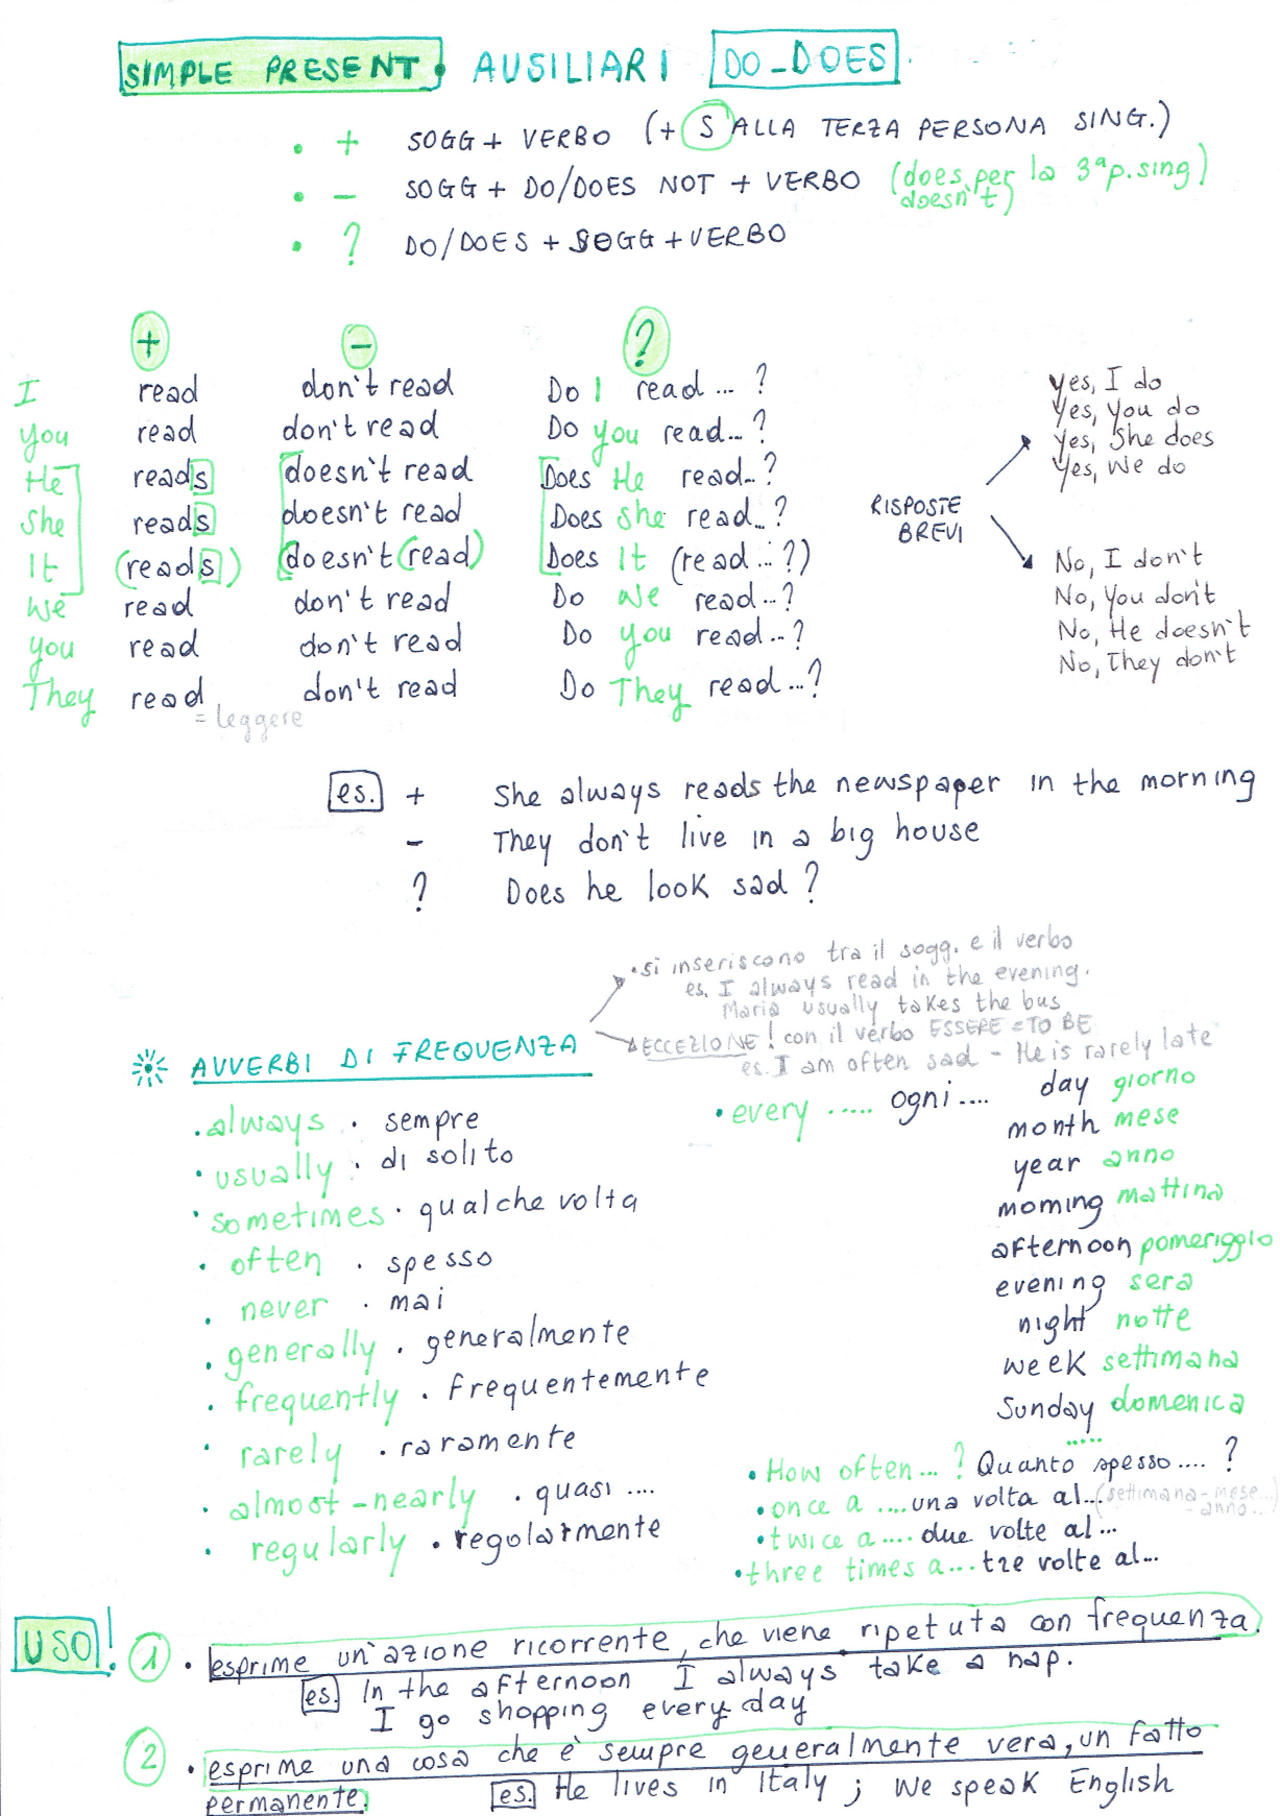 SIMPLE PRESENT. AUSILIARI DO_DOES.
• + SOGG + VERBO (+ S ALLA TERZA PERSONA SING.)
• - SOGG + DO/DOES NOT + VERBO (does per la 3ª p. sing)
doesn't)
• ? DO/DOES + SOGG + VERBO
+ - ?
I read don't read Do I read ... ?
you read don't read Do you read... ?
He reads doesn't read Does He read.. ?
She reads doesn't read Does she read.. ?
It (reads) doesn't (read) Does It (read...?)
We read don't read Do We read...?
you read don't read Do you read...?
They read don't read Do They read...?
= leggere
RISPOSTE
BREVI
Yes, I do
Yes, you do
Yes, She does
Yes, We do
No, I don't
No, you don't
No, He doesn't
No, They don't
es. + She always reads the newspaper in the morning
- They don't live in a big house
? Does he look sad ?
• si inseriscono tra il sogg. e il verbo
es. I always read in the evening.
Maria usually takes the bus
ECCEZIONE! con il verbo ESSERE = TO BE
es. I am often sad - He is rarely late
AVVERBI DI FREQUENZA
• always • sempre
• usually • di solito
• sometimes • qualche volta
• often • spesso
• never • mai
• generally • generalmente
• frequently • frequentemente
• rarely • raramente
• almost - nearly • quasi ....
• regularly • regolarmente
• every ..... ogni.... day giorno
month mese
year anno
morning mattina
afternoon pomeriggio
evening sera
night notte
week settimana
Sunday domenica
.....
• How often... ? Quanto spesso.... ?
• once a .... una volta al...(settimana - mese...
- anno...)
• twice a .... due volte al...
• three times a... tre volte al...
USO!
1 • esprime un'azione ricorrente, che viene ripetuta con frequenza.
es. In the afternoon I always take a nap.
I go shopping every day
2 • esprime una cosa che è sempre generalmente vera, un fatto
permanente. es. He lives in Italy ; We speak English